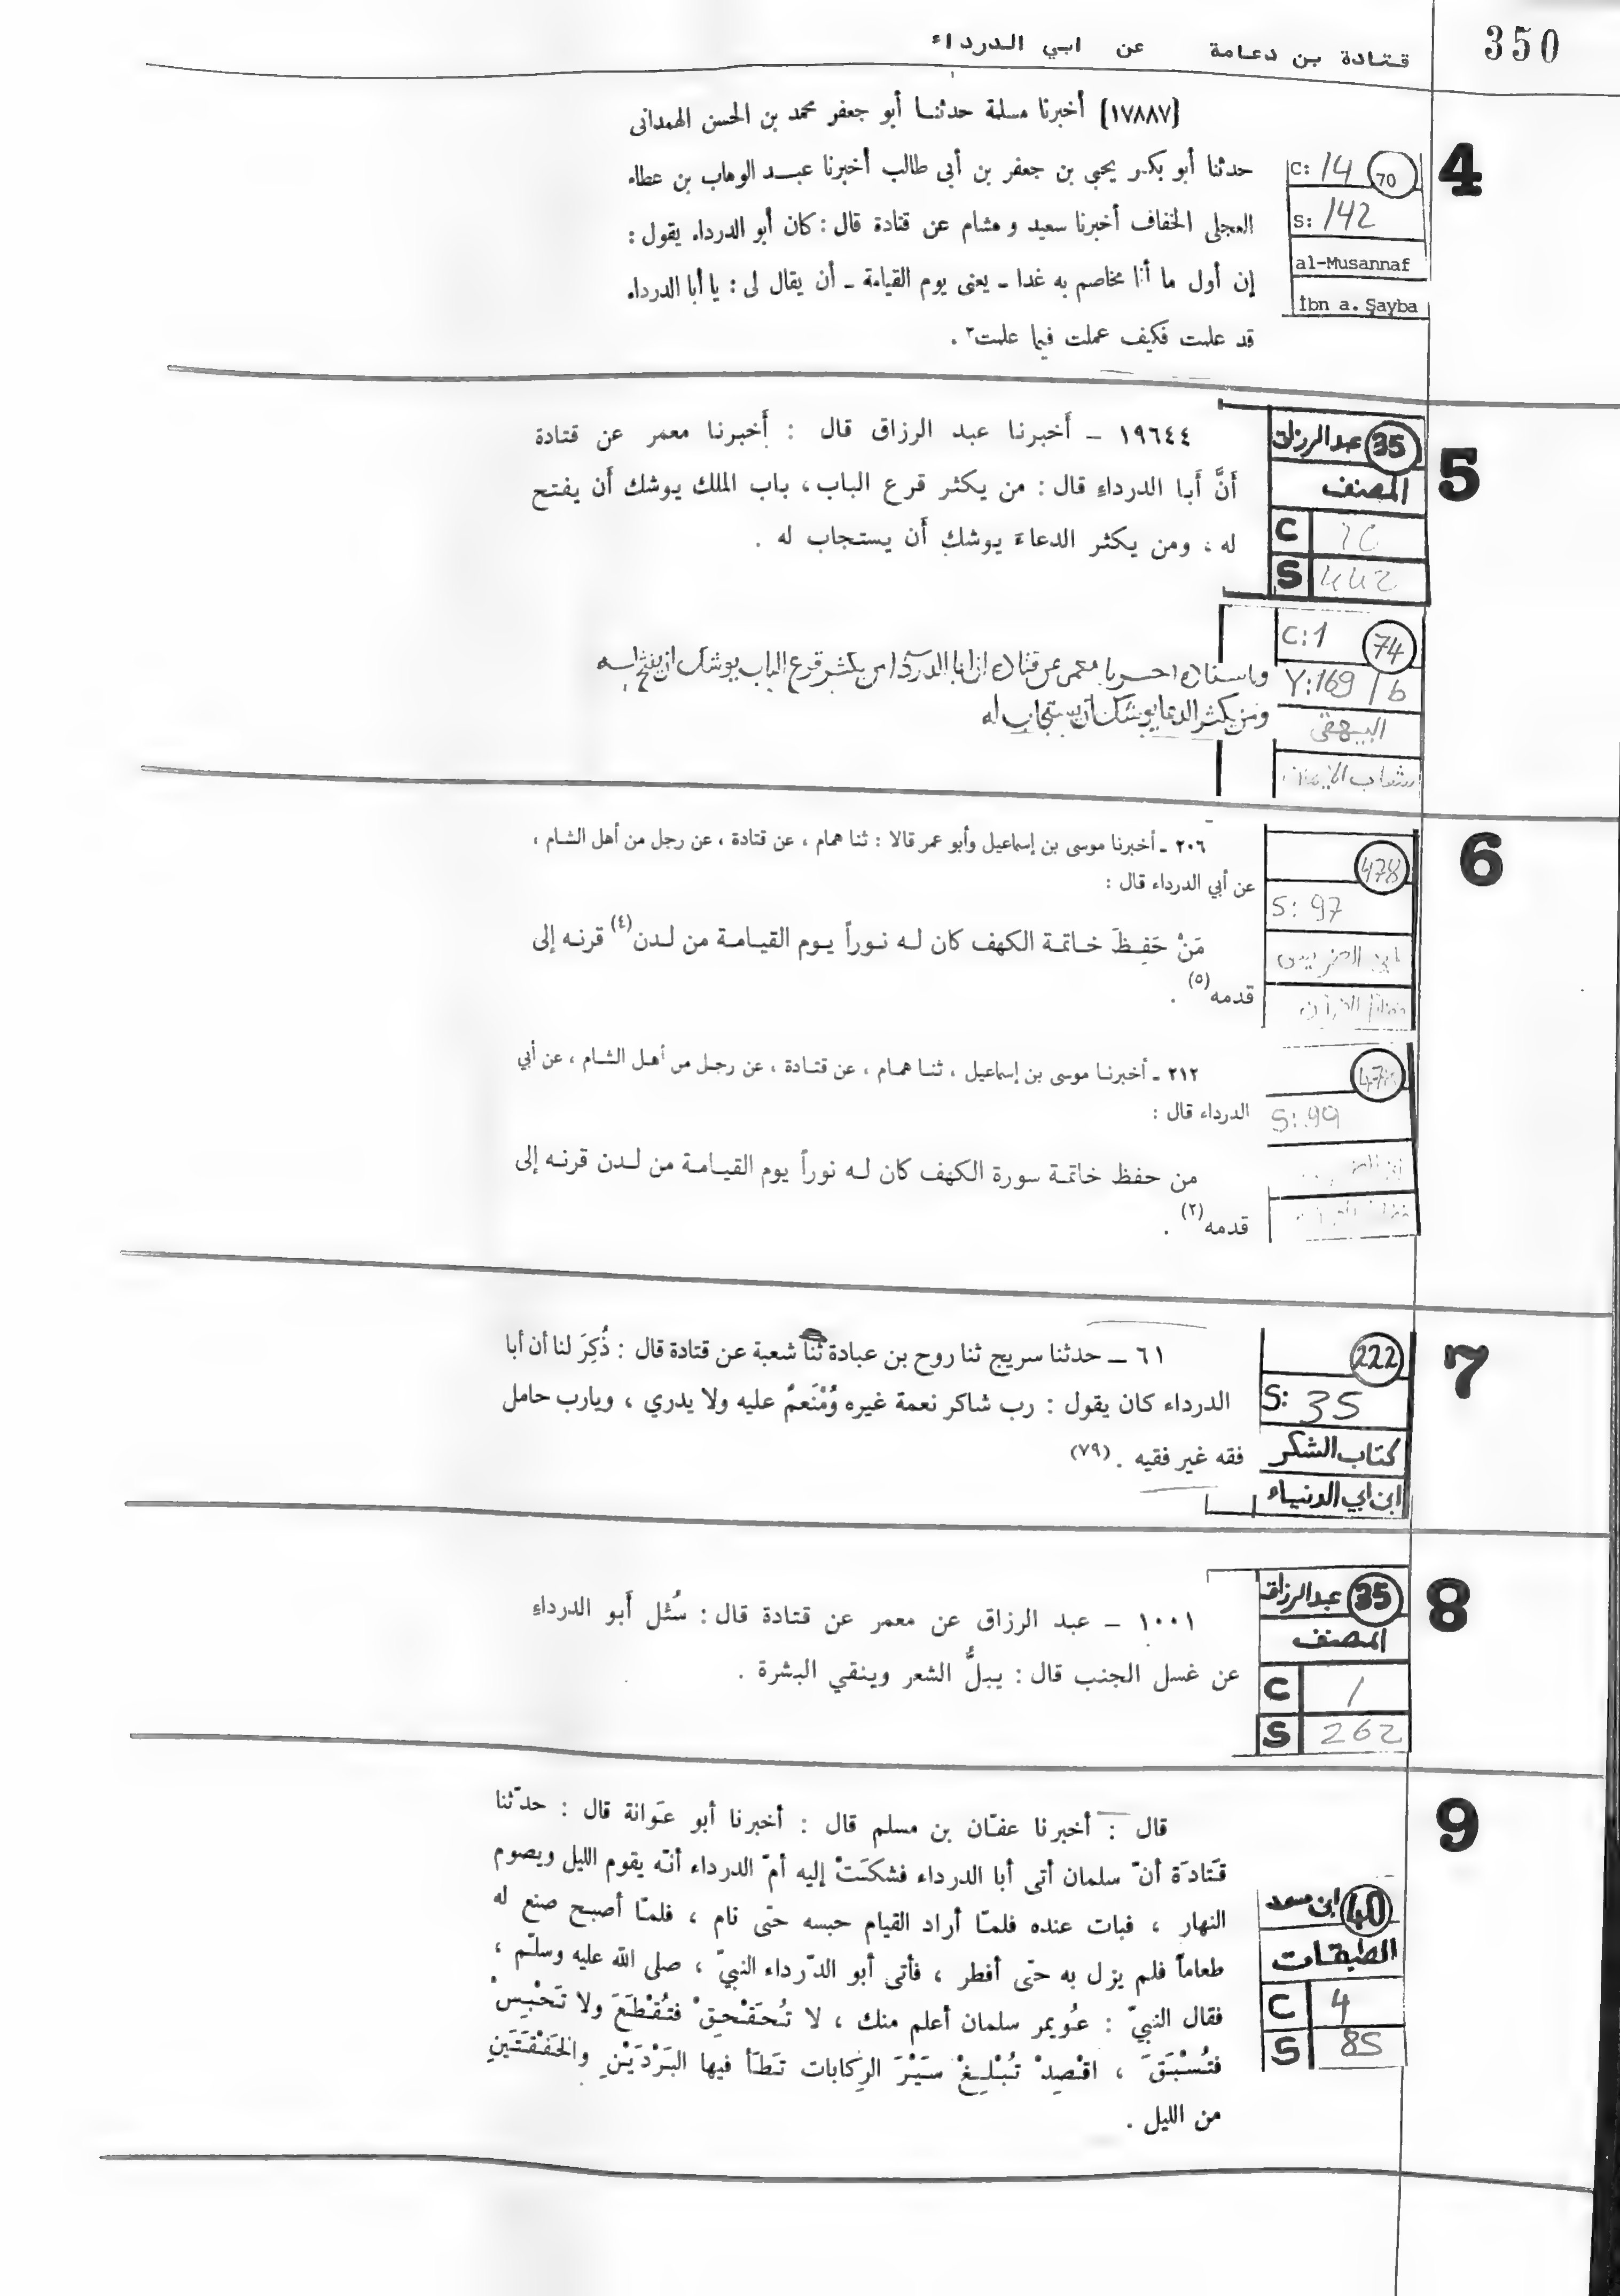 350
قتادة بن دعامة عن ابي الدرداء
4
C: 14 70
S: 142
al-Musannaf
İbn a. Şayba
[١٧٨٨٧] أخبرنا مسلمة حدثنا أبو جعفر محمد بن الحسن الهمدانى
حدثنا أبو بكر يحيى بن جعفر بن أبى طالب أخبرنا عبد الوهاب بن عطاء
العجلى الخفاف أخبرنا سعيد و هشام عن قتادة قال : كان أبو الدرداء يقول :
إن أول ما أنا مخاصم به غدا ـ يعنى يوم القيامة ـ أن يقال لى : يا أبا الدرداء
قد علمت فكيف عملت فيما علمت٢ .
5
35 عبدالرزاق
المصنف
C 10
S 442
١٩٦٤٤ – أخبرنا عبد الرزاق قال : أخبرنا معمر عن قتادة
أَنَّ أَبا الدرداءِ قال : من يكثر قرع الباب ، باب الملك يوشك أَن يفتح
له ، ومن يكثر الدعاءَ يوشك أَن يستجاب له .
C:1 74
Y:169/b
البيهقي
شعاب الإيمان
وباسناده اخبرنا معمر عن قتادة ان ابا الدرداء من يكثر قرع الباب يوشك ان يفتح له
ومن يكثر الدعا يوشك ان يستجاب له
6
478
S: 97
ابن الضريس
فضائل القرآن
٢٠٦ ـ أخبرنا موسى بن إسماعيل وأبو عمر قالا : ثنا همام ، عن قتادة ، عن رجل من أهل الشام ،
عن أبي الدرداء قال :
مَنْ حَفِظَ خاتمة الكهف كان له نوراً يوم القيامة من لدن(٤) قرنه إلى
قدمه(٥) .
478
S: 99
٢١٢ ـ أخبرنا موسى بن إسماعيل ، ثنا همام ، عن قتادة ، عن رجل من أهل الشام ، عن أبي
الدرداء قال :
من حفظ خاتمة سورة الكهف كان له نوراً يوم القيامة من لدن قرنه إلى
قدمه(٢) .
7
222
S: 35
كتاب الشكر
ابن ابي الدنياء
٦١ ــ حدثنا سريج ثنا روح بن عبادة ثنا شعبة عن قتادة قال : ذُكِرَ لنا أن أبا
الدرداء كان يقول : رب شاكر نعمة غيره وُمْنَعمٌ عليه ولا يدري ، ويارب حامل
فقه غير فقيه . (٧٩)
8
35 عبدالرزاق
المصنف
C 1
S 262
١٠٠١ – عبد الرزاق عن معمر عن قتادة قال : سُئل أَبو الدرداءِ
عن غسل الجنب قال : يبلُّ الشعر وينقي البشرة .
9
40 ابن سعد
الطبقات
C 4
S 85
قال : أخبرنا عفّان بن مسلم قال : أخبرنا أبو عَوانة قال : حدّثنا
قَتادَة أنّ سلمان أتى أبا الدرداء فشكَتْ إليه أمّ الدرداء أنّه يقوم الليل ويصوم
النهار ، فبات عنده فلمّا أراد القيام حبسه حتّى نام ، فلمّا أصبح صنع له
طعاماً فلم يزل به حتّى أفطر ، فأتى أبو الدّرداء النبيّ ، صلى الله عليه وسلّم ،
فقال النبيّ : عُويمر سلمان أعلم منك ، لا تُحَقْحِقْ فتُقْطَعَ ولا تَحْبِسْ
فتُسْبَقَ ، اقْصِدْ تُبْلِغْ سَيْرَ الرِكابات تَطَأ فيها البَرْدَيْنِ والخَفْقَتَينِ
من الليل .